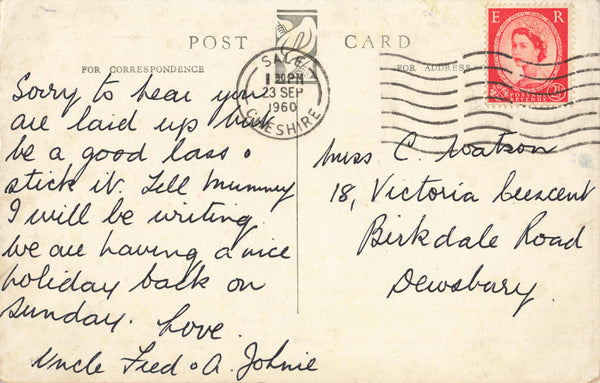 POST CARD
FOR CORRESPONDENCE
FOR ADDRESS
SALE
1 30PM
23 SEP
1960
CHESHIRE
E R
POSTAGE REVENUE
2½
Sorry to hear you
are laid up but
be a good lass &
stick it. Tell Mummy
I will be writing.
We are having a nice
holiday back on
Sunday. Love.
Uncle Fred & A. Johnie
Miss C. Watson
18, Victoria Crescent
Birkdale Road
Dewsbury.